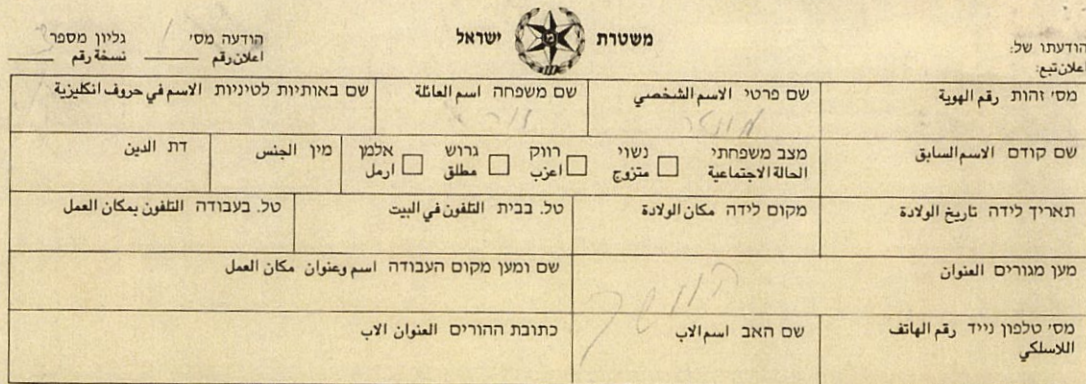 משטרת ישראל
הודעתו של:
اعلان تبع:
הודעה מס' 1
اعلان رقم
גליון מספר
نسخة رقم
מס' זהות رقم الهوية
שם פרטי الاسم الشخصي
שם משפחה اسم العائلة
שם באותיות לטיניות الاسم في حروف انكليزية
שם קודם الاسم السابق
מצב משפחתי
الحالة الاجتماعية
נשוי
متزوج
רווק
اعزب
גרוש
مطلق
אלמן
ارمل
מין الجنس
דת الدين
תאריך לידה تاريخ الولادة
מקום לידה مكان الولادة
טל. בבית التلفون في البيت
טל. בעבודה التلفون بمكان العمل
מען מגורים العنوان
המשך
שם ומען מקום העבודה اسم وعنوان مكان العمل
מס' טלפון נייד رقم الهاتف
اللاسلكي
שם האב اسم الاب
כתובת ההורים العنوان الاب